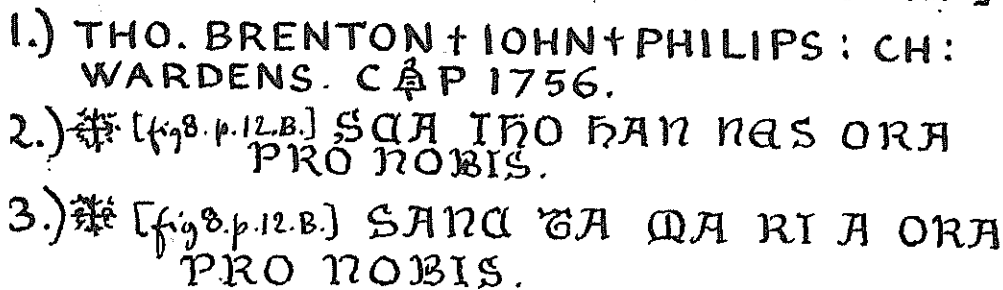 1.) THO. BRENTON † IOHN † PHILIPS : CH :
WARDENS. C P 1756.
2.) [fig 8. p. 12. B.] SCA IHO HAN NES ORA
PRO NOBIS.
3.) [fig 8. p. 12. B.] SANC TA MA RI A ORA
PRO NOBIS.